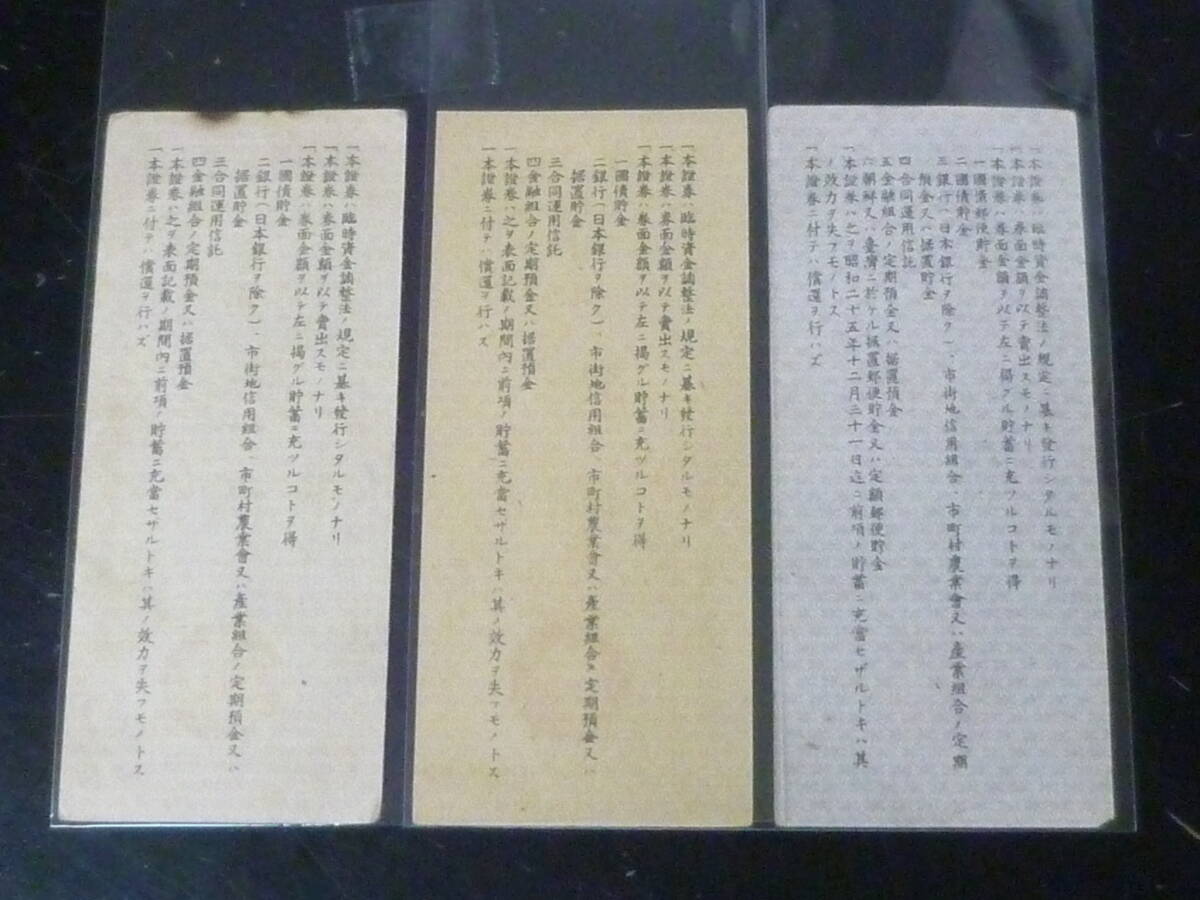 一本證券ハ臨時資金調整法ノ規定ニ基キ發行シタルモノナリ
一本證券ハ券面金額ヲ以テ賣出スモノナリ
一本證券ハ券面金額ヲ以テ左ニ揭グル貯蓄ニ充ツルコトヲ得
一國債貯金
二銀行(日本銀行ヲ除ク)、市街地信用組合、市町村農業會又ハ產業組合ノ定期預金又ハ
据置貯金
三合同運用信託
四金融組合ノ定期預金又ハ据置預金
一本證券ハ之ヲ表面記載ノ期間內ニ前項ノ貯蓄ニ充當セザルトキハ其ノ效力ヲ失フモノトス
一本證券ニ付テハ償還ヲ行ハズ
一本證券ハ臨時資金調整法ノ規定ニ基キ發行シタルモノナリ
一本證券ハ券面金額ヲ以テ賣出スモノナリ
一本證券ハ券面金額ヲ以テ左ニ揭グル貯蓄ニ充ツルコトヲ得
一國債貯金
二銀行(日本銀行ヲ除ク)、市街地信用組合、市町村農業會又ハ產業組合ノ定期預金又ハ
据置貯金
三合同運用信託
四金融組合ノ定期預金又ハ据置預金
一本證券ハ之ヲ表面記載ノ期間內ニ前項ノ貯蓄ニ充當セザルトキハ其ノ效力ヲ失フモノトス
一本證券ニ付テハ償還ヲ行ハズ
一本證券ハ臨時資金調整法ノ規定ニ基キ發行シタルモノナリ
一本證券ハ券面金額ヲ以テ賣出スモノナリ
一本證券ハ券面金額ヲ以テ左ニ揭グル貯蓄ニ充ツルコトヲ得
一國債郵便貯金
二國債貯金
三銀行(日本銀行ヲ除ク)、市街地信用組合、市町村農業會又ハ產業組合ノ定期
預金又ハ据置貯金
四合同運用信託
五金融組合ノ定期預金又ハ据置預金
六朝鮮又ハ臺灣ニ於ケル据置郵便貯金又ハ定額郵便貯金
一本證券ハ之ヲ昭和二十五年十二月三十一日迄ニ前項ノ貯蓄ニ充當セザルトキハ其
ノ效力ヲ失フモノトス
一本證券ニ付テハ償還ヲ行ハズ